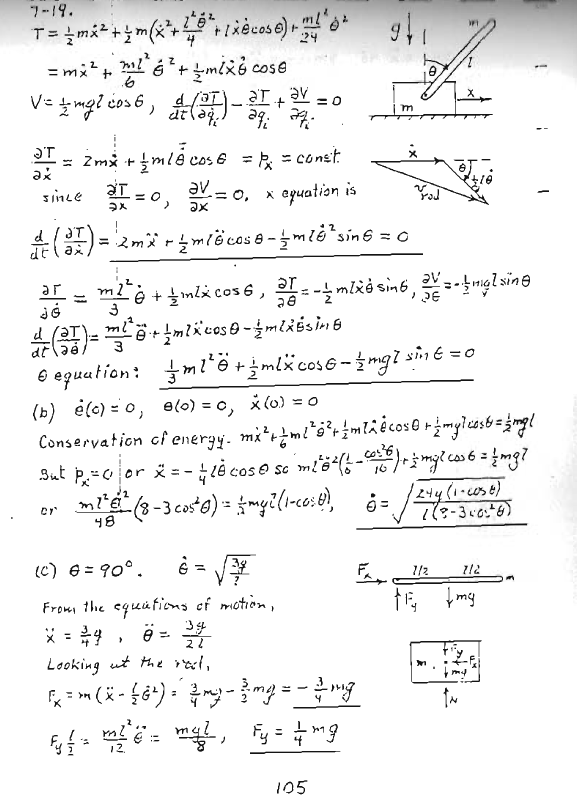 7-19.
T = ½mẋ² + ½m(ẋ² + l²θ̇²/4 + lẋθ̇cosθ) + ml²/24 θ̇²
= mẋ² + ml²/6 θ̇² + ½mlẋθ̇ cosθ
V = ½mgl cosθ, d/dt(∂T/∂q̇ᵢ) - ∂T/∂qᵢ + ∂V/∂qᵢ = 0
g θ l m m x
∂T/∂ẋ = 2mẋ + ½mlθ̇cosθ = pₓ = const.
ẋ θ ½lθ̇ v rod
since ∂T/∂x = 0, ∂V/∂x = 0. x equation is
d/dt(∂T/∂ẋ) = 2mẍ + ½mlθ̈cosθ - ½mlθ̇²sinθ = 0
∂T/∂θ̇ = ml²/3 θ̇ + ½mlẋcosθ, ∂T/∂θ = -½mlẋθ̇sinθ, ∂V/∂θ = -½mgl sinθ
d/dt(∂T/∂θ̇) = ml²/3 θ̈ + ½mlẍcosθ - ½mlẋθ̇sinθ
θ equation: ⅓ml²θ̈ + ½mlẍcosθ - ½mgl sinθ = 0
(b) θ̇(0) = 0, θ(0) = 0, ẋ(0) = 0
Conservation of energy. mẋ² + ⅙ml²θ̇² + ½mlẋθ̇cosθ + ½mglcosθ = ½mgl
But pₓ = 0 or ẋ = -¼lθ̇cosθ so ml²θ̇²(⅙ - cos²θ/16) + ½mglcosθ = ½mgl
or ml²θ̇²/48 (8-3cos²θ) = ½mgl(1-cosθ), θ̇ = √(24g(1-cosθ)/l(8-3cos²θ))
(c) θ = 90°. θ̇ = √(3g/l)
Fₓ l/2 l/2 m
Fy mg
From the equations of motion,
ẍ = ¾g, θ̈ = 3g/2l
Looking at the rod,
m Fy Fₓ mg N
Fₓ = m(ẍ - l/2 θ̇²) = ¾mg - 3/2 mg = -¾mg
Fy l/2 = ml²/12 θ̈ = mgl/8, Fy = ¼mg
105